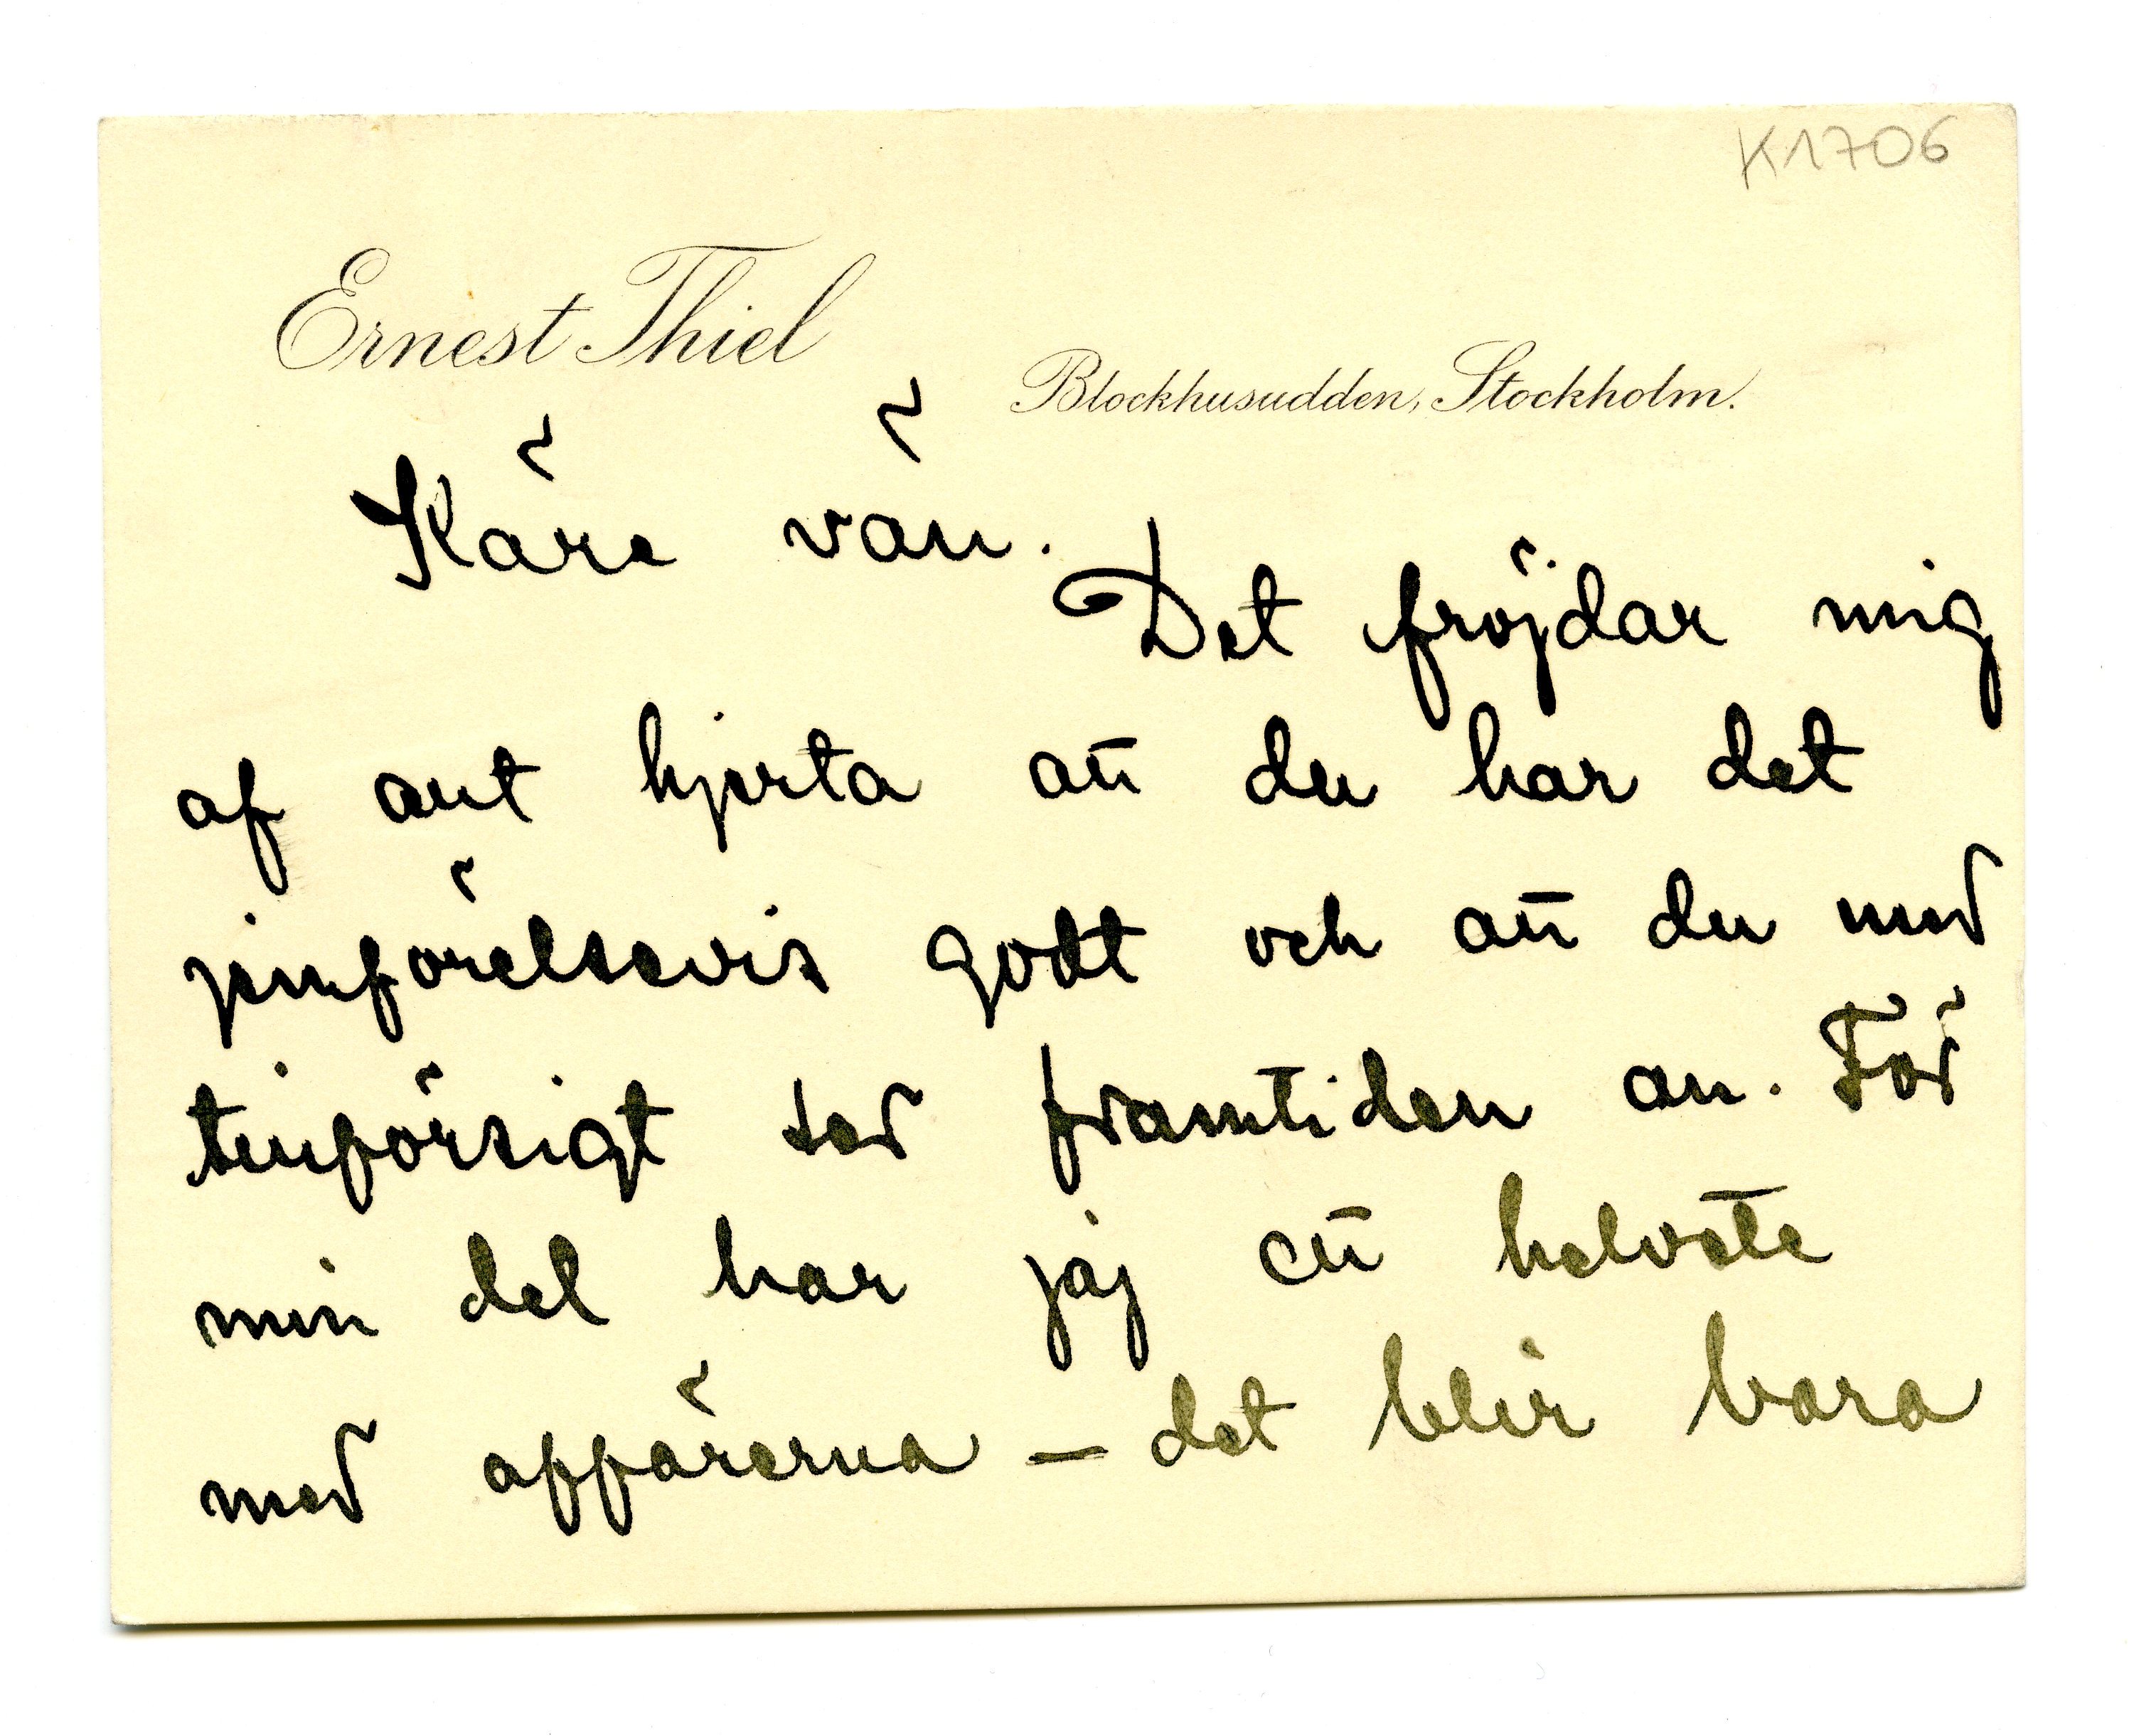 K1706
Ernest Thiel
Blockhusudden, Stockholm.
Käre vän.
Det fröjdar mig
af ant hjerta att du har det
jemförelsevis godt och att du med
tinförsigt ser framtiden an. För
min del har jag ett helvete
med affärerna – det blir bara